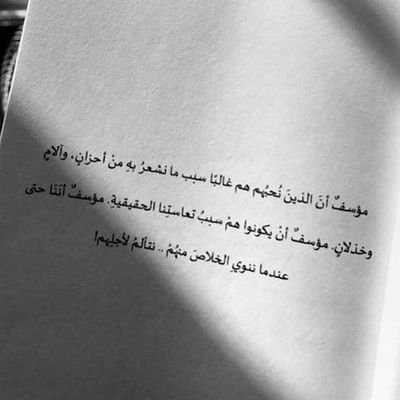 مؤسفٌ أنَ الذينَ نُحبُهم هم غالبًا سبب ما نشعرُ بهِ منْ أحزانٍ، وآلامٍ
وخذلانٍ. مؤسفٌ أنْ يكونوا همْ سببُ تعاستِنا الحقيقيةِ. مؤسفٌ أنَنَا حتى
عندما ننوي الخلاصَ منهُمْ .. نتألمُ لأجلِهم!